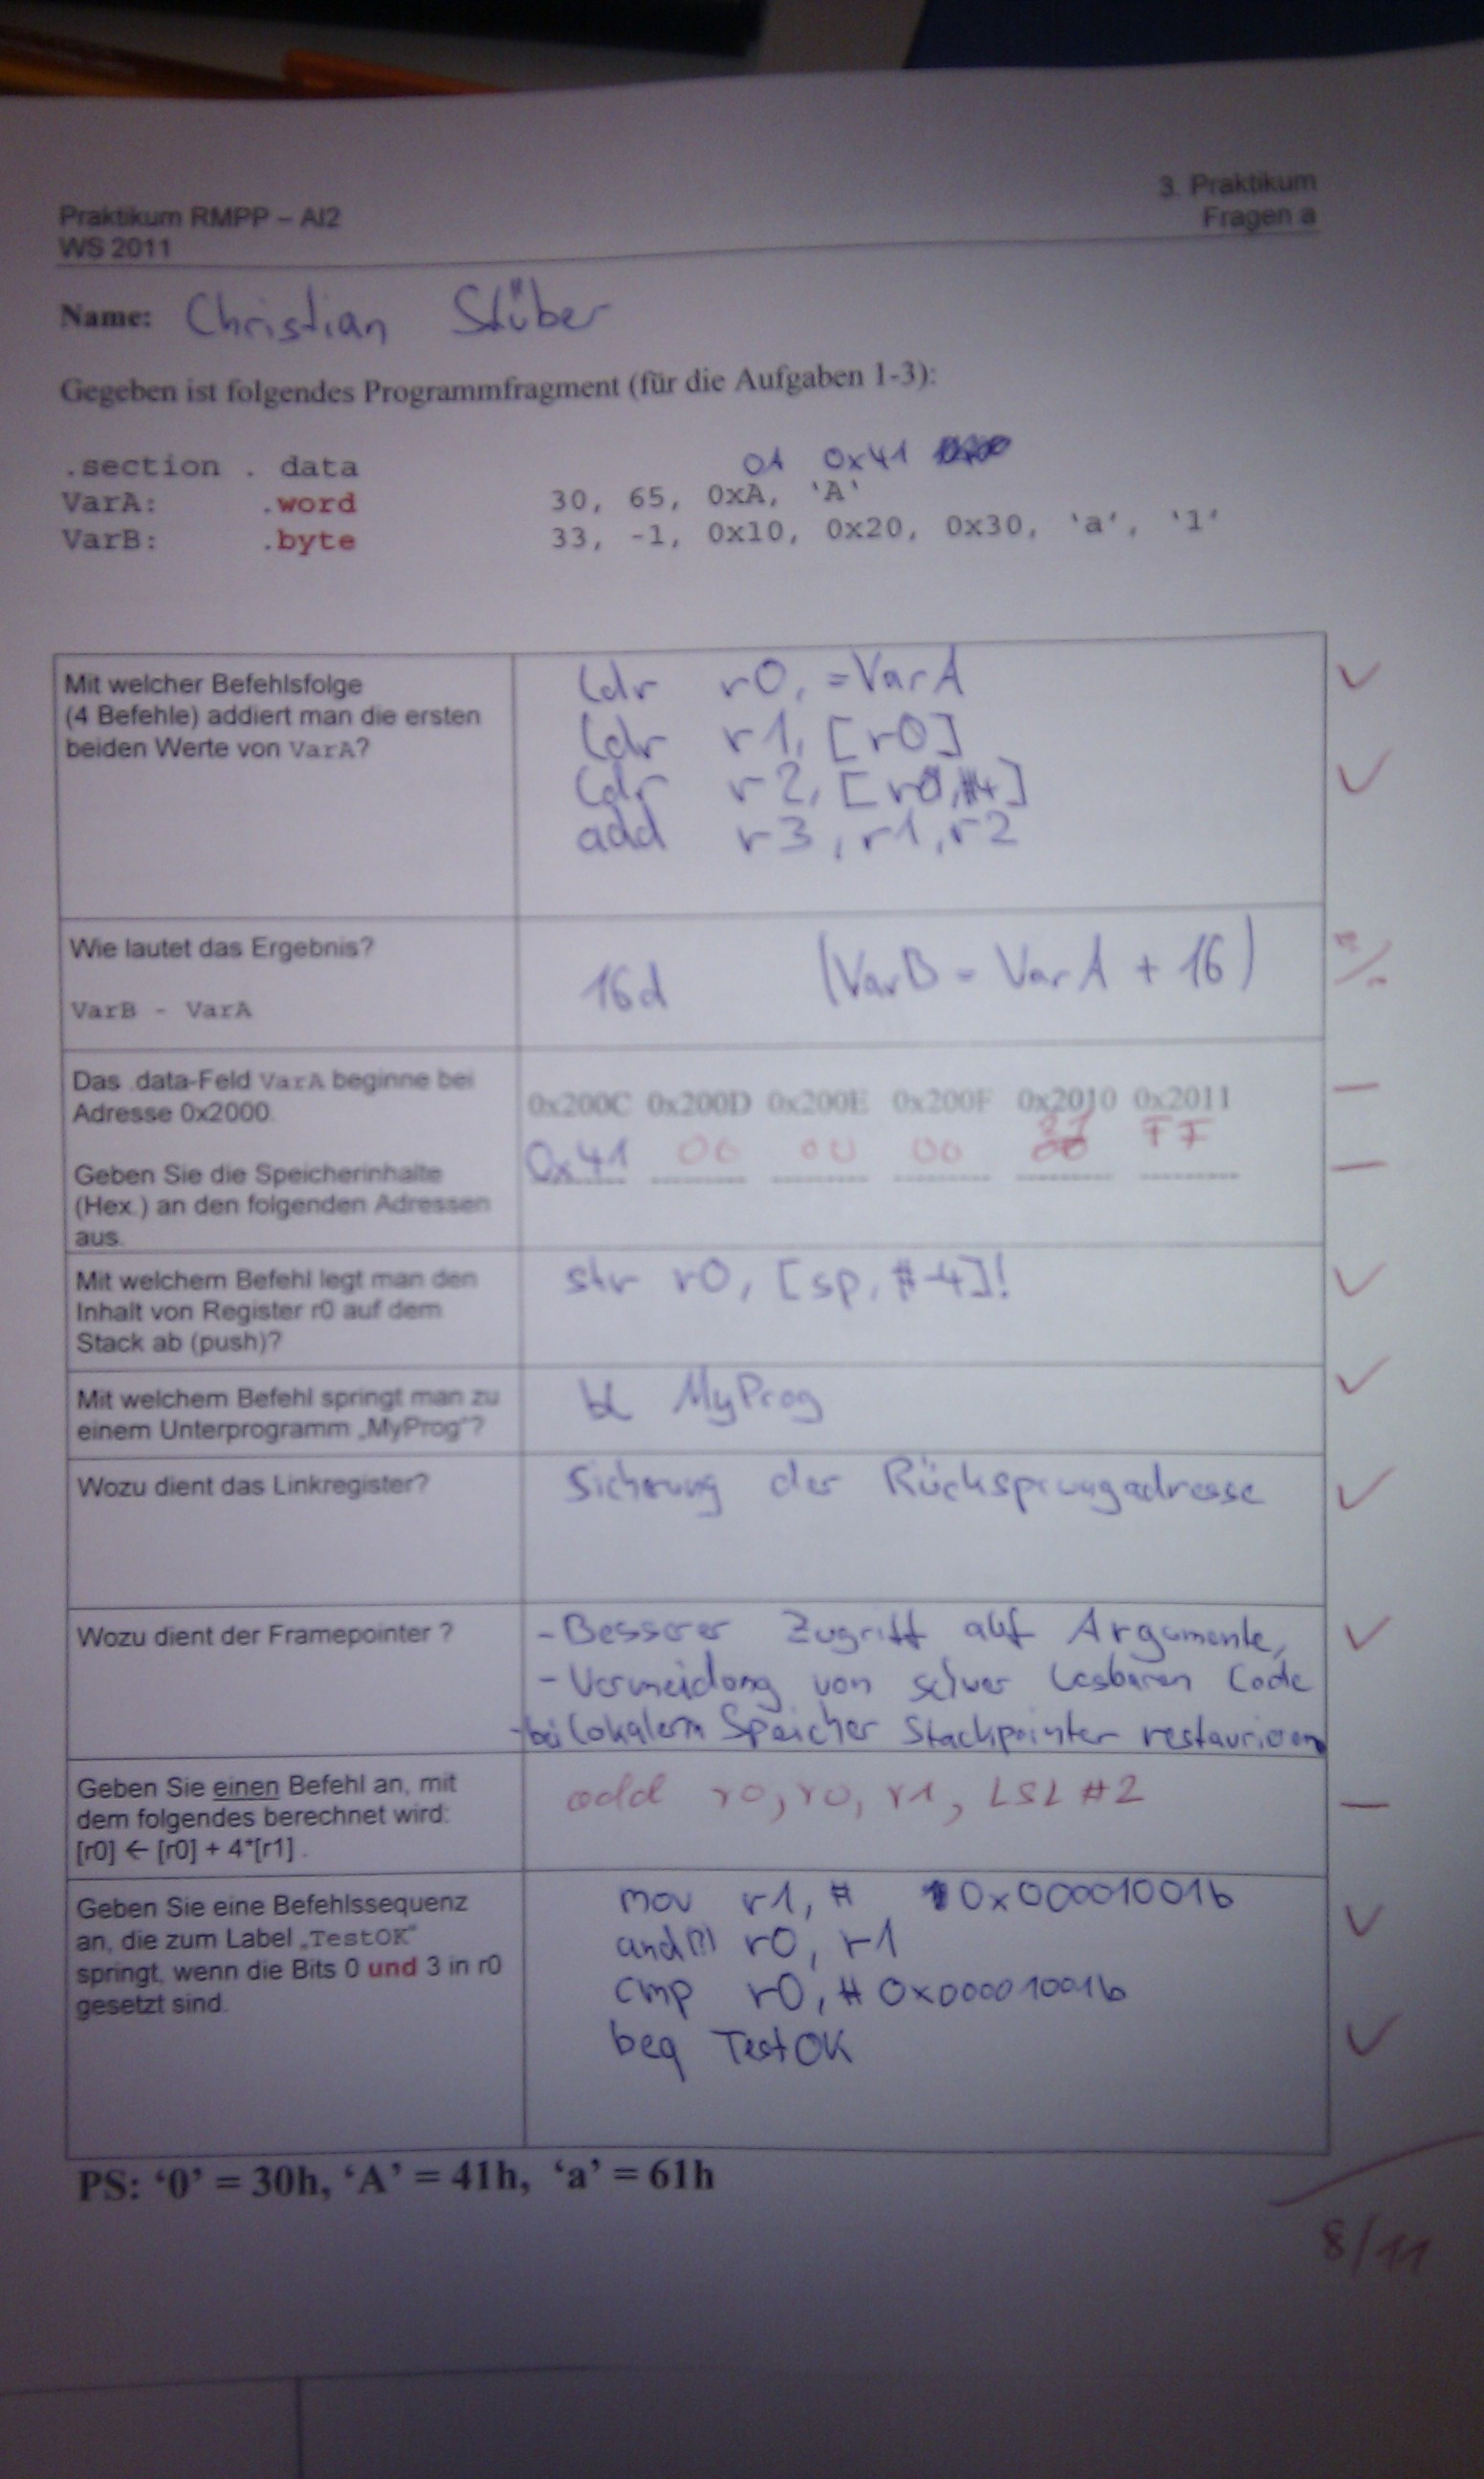 3. Praktikum
Praktikum RMPP – AI2
Fragen a
WS 2011
Name: Christian Stüber
Gegeben ist folgendes Programmfragment (für die Aufgaben 1-3):
0x41
.section . data
VarA: .word 30, 65, 0xA, 'A'
VarB: .byte 33, -1, 0x10, 0x20, 0x30, 'a', '1'
Mit welcher Befehlsfolge
(4 Befehle) addiert man die ersten
beiden Werte von VarA?
ldr r0, =VarA
ldr r1, [r0]
ldr r2, [r0,#4]
add r3, r1, r2
Wie lautet das Ergebnis?
VarB - VarA
16d (VarB = VarA + 16)
Das .data-Feld VarA beginne bei
Adresse 0x2000.
Geben Sie die Speicherinhalte
(Hex.) an den folgenden Adressen
aus.
0x200C 0x200D 0x200E 0x200F 0x2010 0x2011
0x41 00 00 00 21 FF
Mit welchem Befehl legt man den
Inhalt von Register r0 auf dem
Stack ab (push)?
str r0, [sp, #-4]!
Mit welchem Befehl springt man zu
einem Unterprogramm „MyProg"?
bl MyProg
Wozu dient das Linkregister?
Sicherung der Rücksprungadresse
Wozu dient der Framepointer ?
- Besserer Zugriff auf Argumente,
- Vermeidung von schwer lesbaren Code
- bei lokalem Speicher Stackpointer restaurieren
Geben Sie einen Befehl an, mit
dem folgendes berechnet wird:
[r0] ← [r0] + 4*[r1] .
add r0, r0, r1, LSL #2
Geben Sie eine Befehlssequenz
an, die zum Label „TestOK"
springt, wenn die Bits 0 und 3 in r0
gesetzt sind.
mov r1, # 0x00001001b
and r0, r1
cmp r0, # 0x00001001b
beq TestOK
PS: '0' = 30h, 'A' = 41h, 'a' = 61h
8/11